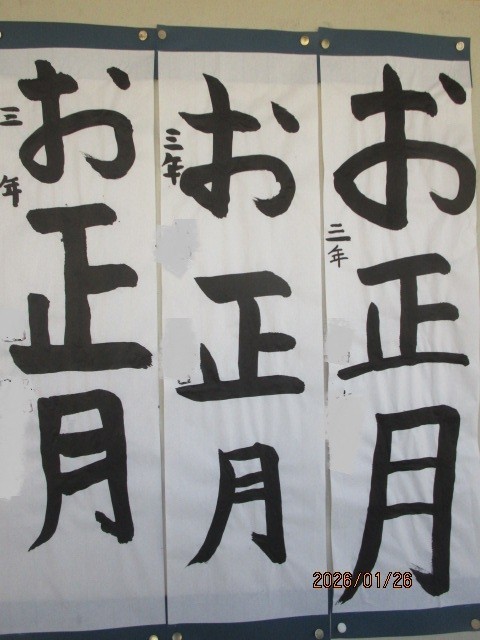 お正月
三年
お正月
三年
お正月
三年
2026/01/26